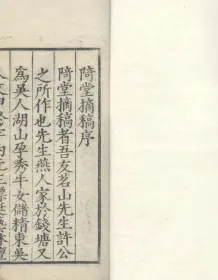 陭堂摘稿序
陭堂摘稿者吾友茗山先生許公
之所作也先生燕人家於錢塘又
為吳人湖山孕秀牛女儲精東吳